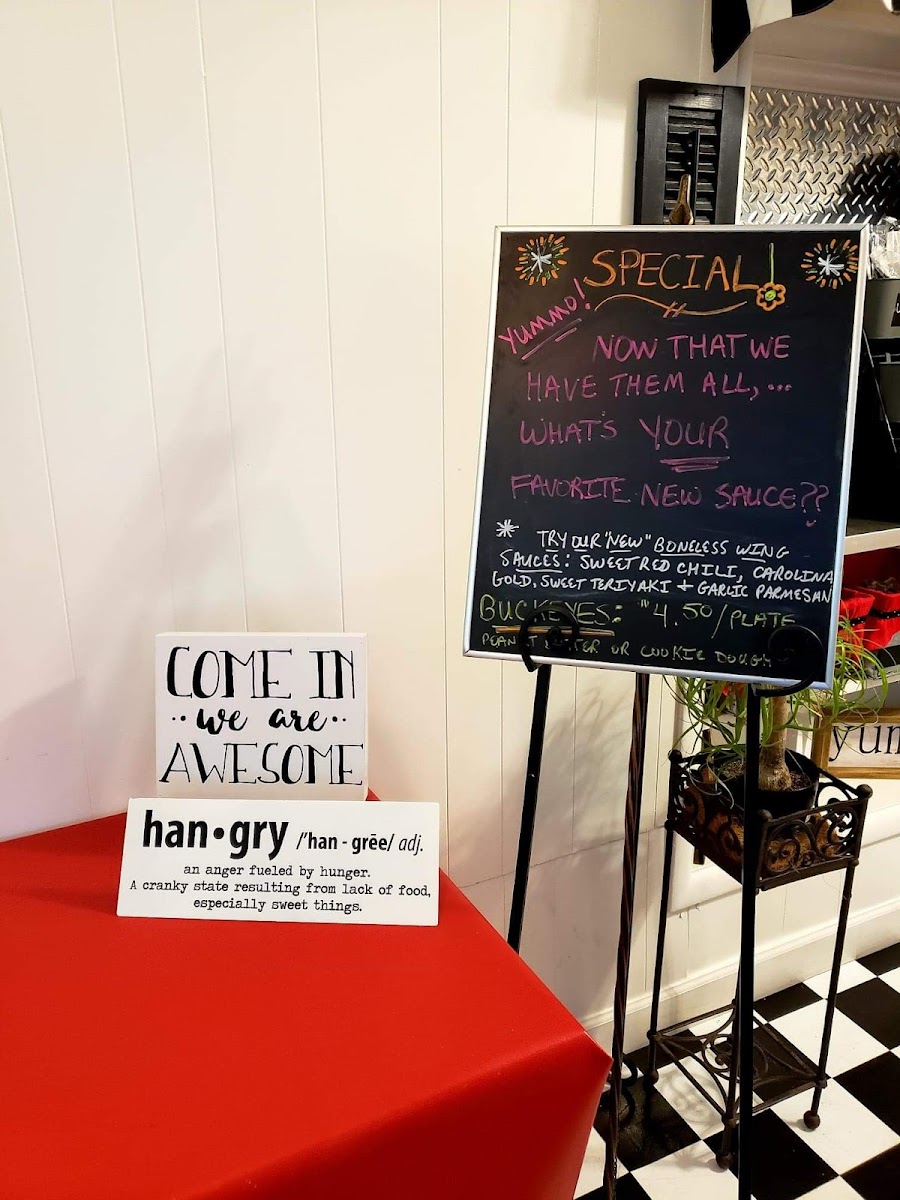 SPECIAL!
Yummo!
NOW THAT WE
HAVE THEM ALL,...
WHAT'S YOUR
FAVORITE NEW SAUCE??
* TRY OUR "NEW" BONELESS WING
SAUCES: SWEET RED CHILI, CAROLINA
GOLD, SWEET TERIYAKI + GARLIC PARMESAN
BUCKEYES: $4.50/PLATE
PEANUT BUTTER OR COOKIE DOUGH
COME IN
··we are··
AWESOME
han•gry /'han - grēe/ adj.
an anger fueled by hunger.
A cranky state resulting from lack of food,
especially sweet things.
yum